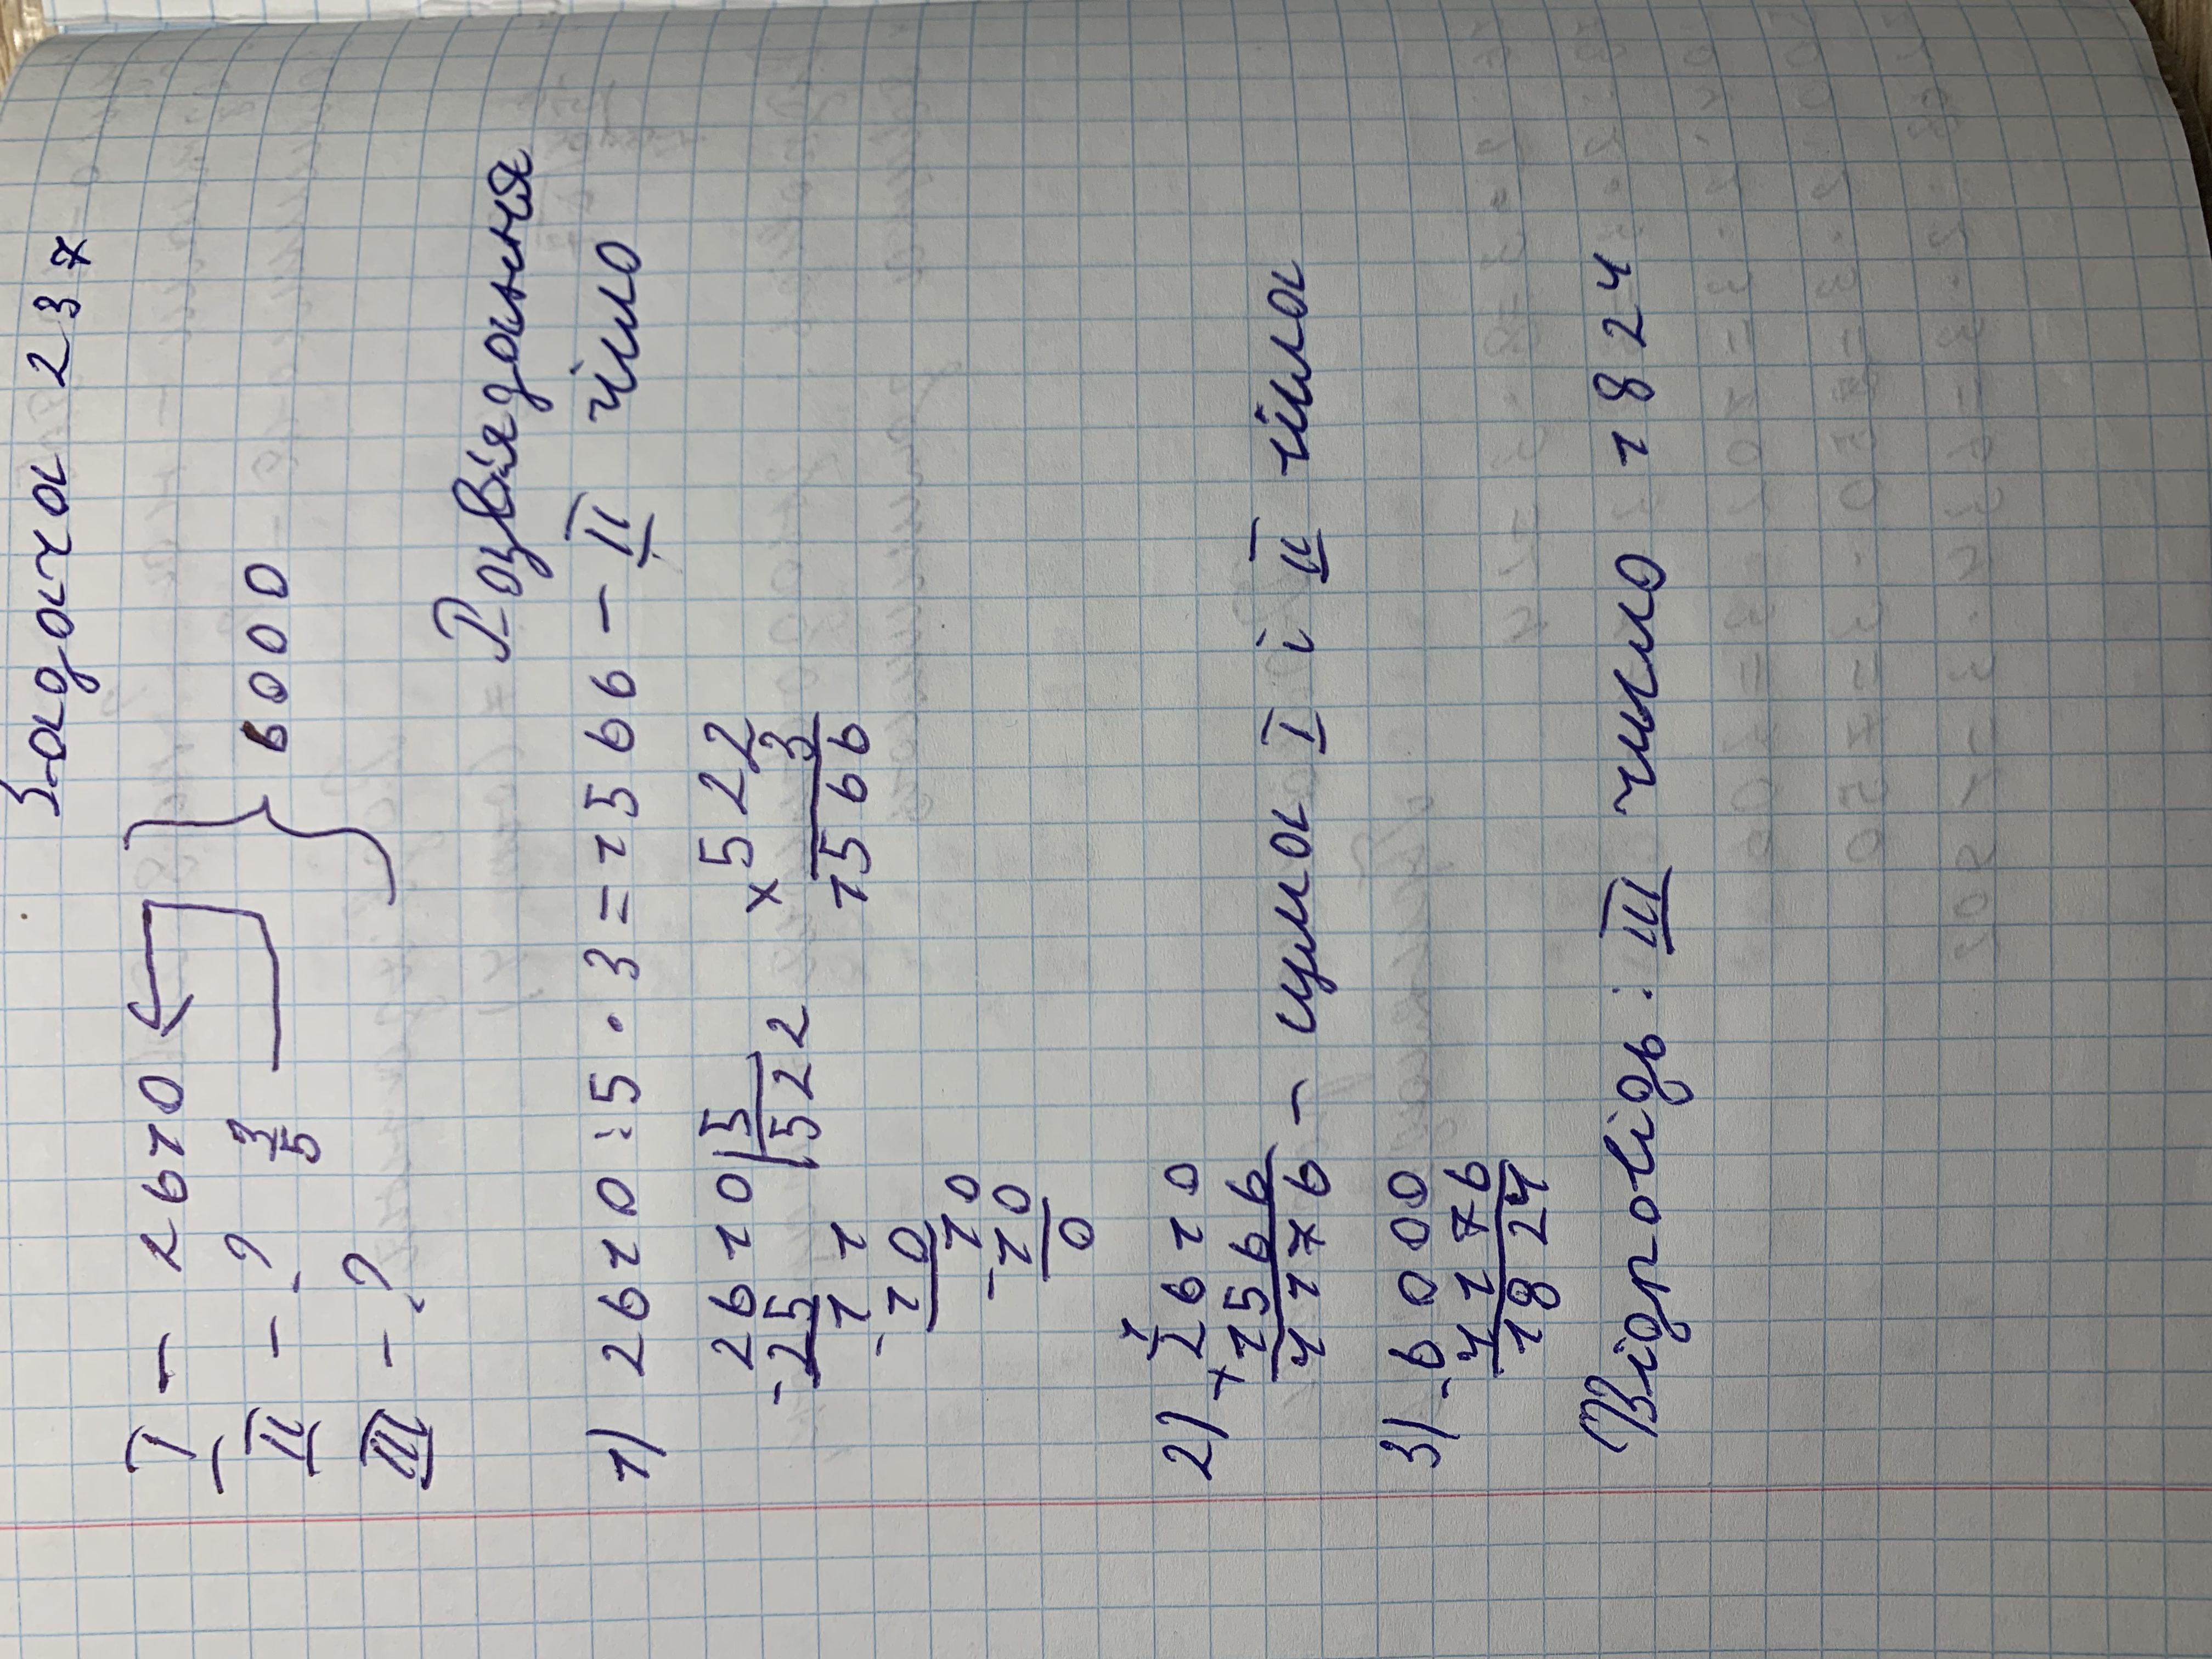 Задача 237
I - 2610
II - ? 3/5
6000
III - ?
Розвязання
1) 2610 : 5 · 3 = 1566 - II число
2610 | 5
-25 | 522
11
-10
10
-10
0
× 522
3
1566
2) + 2610
1566
4176 - сума I і II числа
3) - 6000
4176
1824
Відповідь: III число 1824